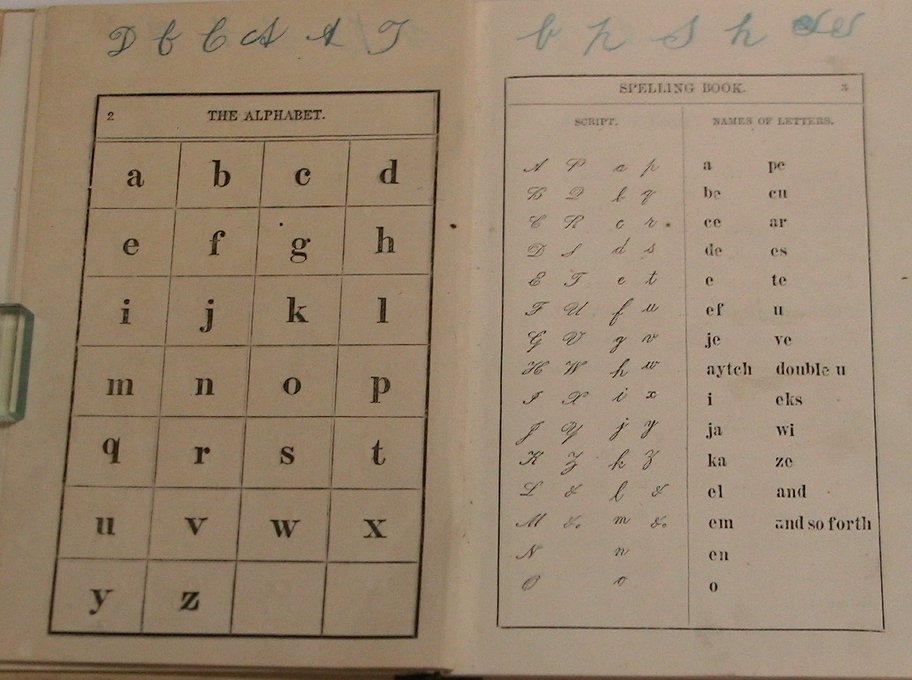 2 THE ALPHABET.
a b c d
e f g h
i j k l
m n o p
q r s t
u v w x
y z
b h S h
SPELLING BOOK. 3
SCRIPT. NAMES OF LETTERS.
A P a p a pe
B Q b q be cu
C R c r ce ar
D S d s de es
E T e t e te
F U f u ef u
G V g v je ve
H W h w aytch double u
I X i x i eks
J Y j y ja wi
K Z k z ka ze
L & l & el and
M &c. m &c. em and so forth
N n en
O o o